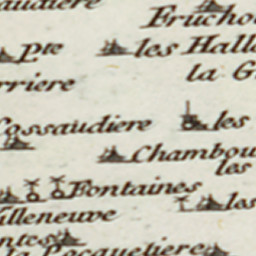 audiere
Frucho
pte
les Halle
rriere
la G
Cossaudiere
les
Chambou
les
Fontaines
les
illeneuve
ntes
la Rocquetiere